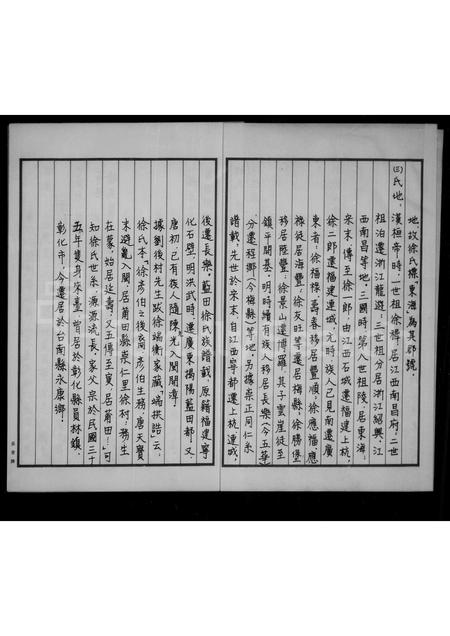 地故徐氏標東海為其郡號。
㈢氏地：漢桓帝時，一世祖徐稺，居江西南昌府，二世
祖泊遷浙江龍遊；三世祖分居浙江紹興、江
西南昌等地。三國時第八世祖陵，居東海。
宋末，傳至徐一郎，由江西石城遷福建上杭，
徐二郎遷福建連城。元時，族人已見南遷廣
東者：徐福、壽春移居豐順，徐應福、應
祿徒居海豐；徐友旺等遷居梅縣，徐勝堡
移居陸豐；徐景山遷博羅，其子雲崖徒至
鎮平開基。明時續有族人移居長樂（今五華）
分遷程鄉（今梅縣）等地。另據崇正同仁系
譜載：先世於宋末，自江西寧都遷上杭連城，
後遷長樂。藍田徐氏族譜載：原籍福建寧
化石壁，明洪武時，遷廣東揭陽藍田都。又
唐初，已有族人隨陳光入閩開漳。
據劉後村先生跋徐端衡家藏「端拱誥」云：
徐氏本「徐彥伯之後裔，彥伯生務，唐天寶
末避亂入閩，居莆田縣崇仁里徐村；務生
在蒙，始居延壽，又五傳至寅，居莆田…」可
知徐氏世系，源源流長。家父宗於民國三十
五年隻身來臺，曾居於彰化縣員林鎮、
彰化市，今遷居於台南縣永康鄉。